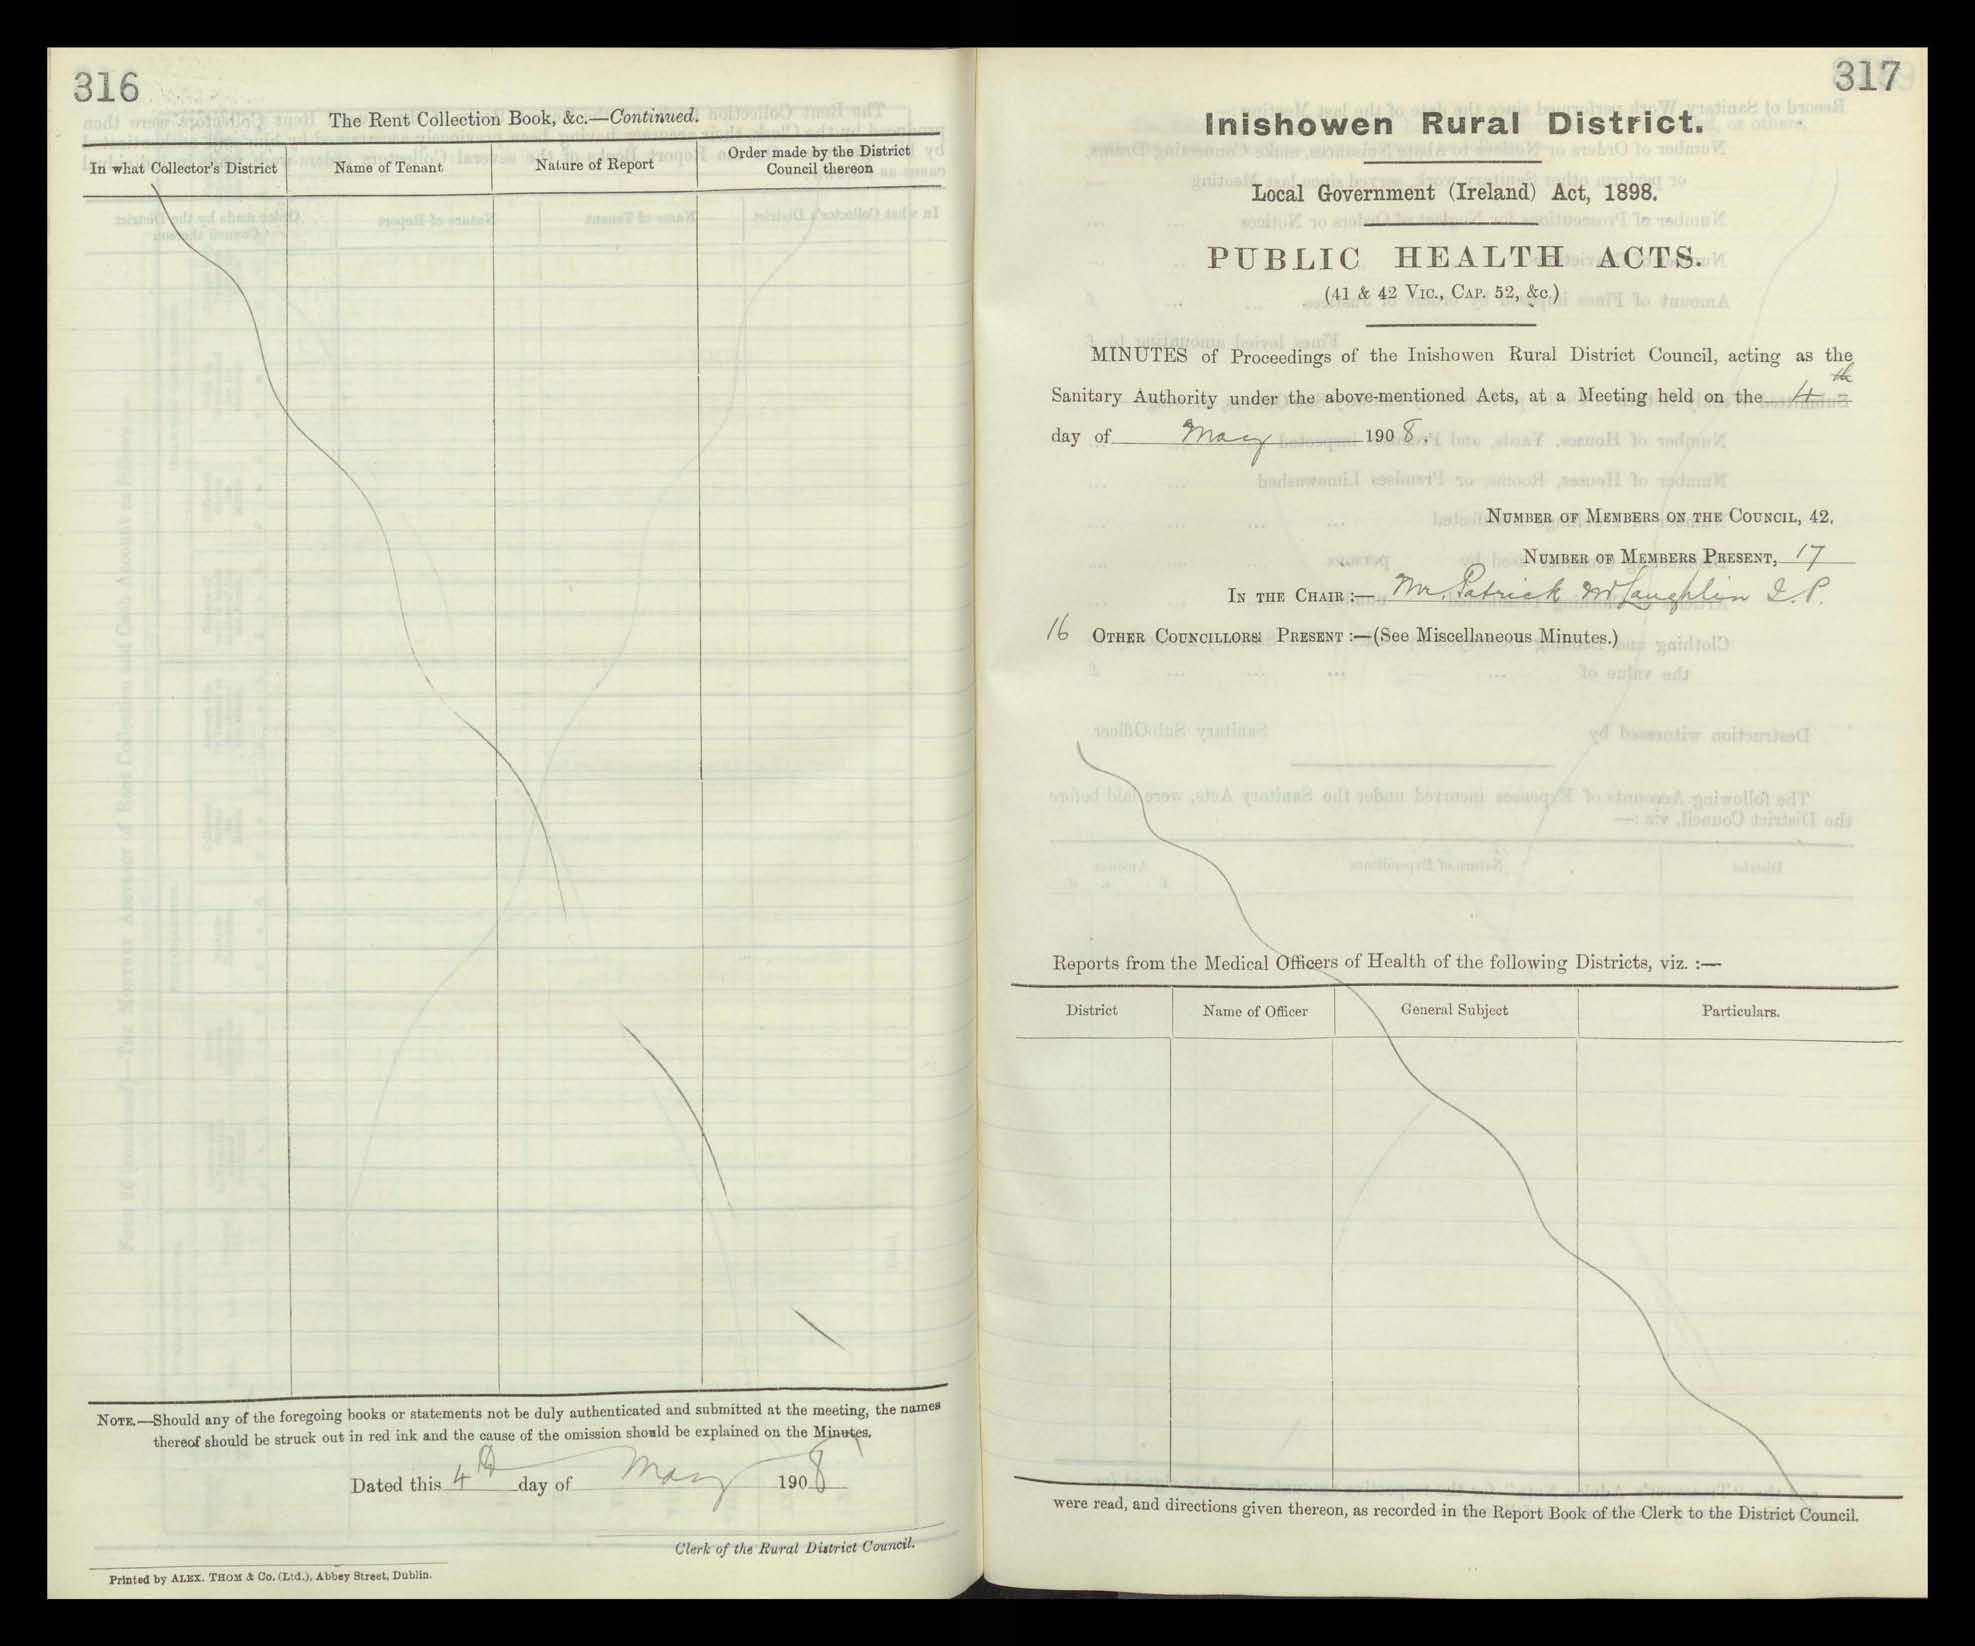 316
The Rent Collection Book, &c.—Continued.
In what Collector's District
Name of Tenant
Nature of Report
Order made by the District
Council thereon
NOTE.—Should any of the foregoing books or statements not be duly authenticated and submitted at the meeting, the names
thereof should be struck out in red ink and the cause of the omission should be explained on the Minutes.
Dated this 4th day of May 1908
Clerk of the Rural District Council.
Printed by ALEX. THOM & Co. (Ltd.), Abbey Street, Dublin.
317
Inishowen Rural District.
Local Government (Ireland) Act, 1898.
PUBLIC HEALTH ACTS.
(41 & 42 VIC., CAP. 52, &c.)
MINUTES of Proceedings of the Inishowen Rural District Council, acting as the
Sanitary Authority under the above-mentioned Acts, at a Meeting held on the 4th
day of May 1908.
NUMBER OF MEMBERS ON THE COUNCIL, 42.
NUMBER OF MEMBERS PRESENT, 17
IN THE CHAIR :— Mr. Patrick McLaughlin J.P.
16 OTHER COUNCILLORS PRESENT :—(See Miscellaneous Minutes.)
Reports from the Medical Officers of Health of the following Districts, viz. :—
District
Name of Officer
General Subject
Particulars.
were read, and directions given thereon, as recorded in the Report Book of the Clerk to the District Council.